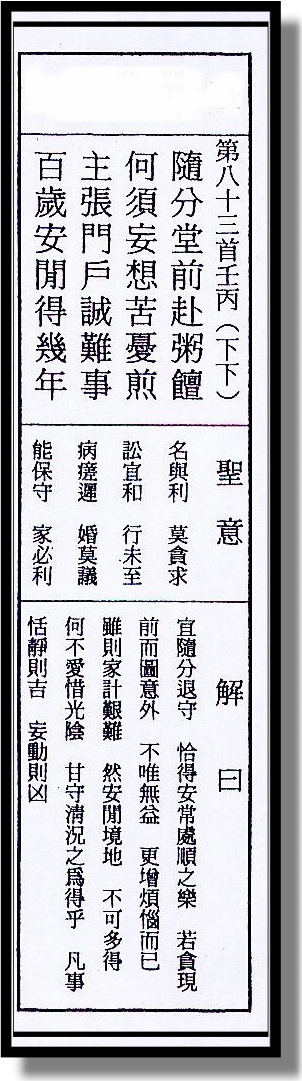 第八十三首壬丙（下下）
隨分堂前赴粥饘
何須妄想苦憂煎
主張門戶誠難事
百歲安閒得幾年
聖意
名與利　莫貪求
訟宜和　行未至
病瘥遲　婚莫議
能保守　家必利
解曰
宜隨分退守　恰得安常處順之樂　若貪現
前而圖意外　不唯無益　更增煩惱而已
雖則家計艱難　然安閒境地　不可多得
何不愛惜光陰　甘守清況之為得乎　凡事
恬靜則吉　妄動則凶